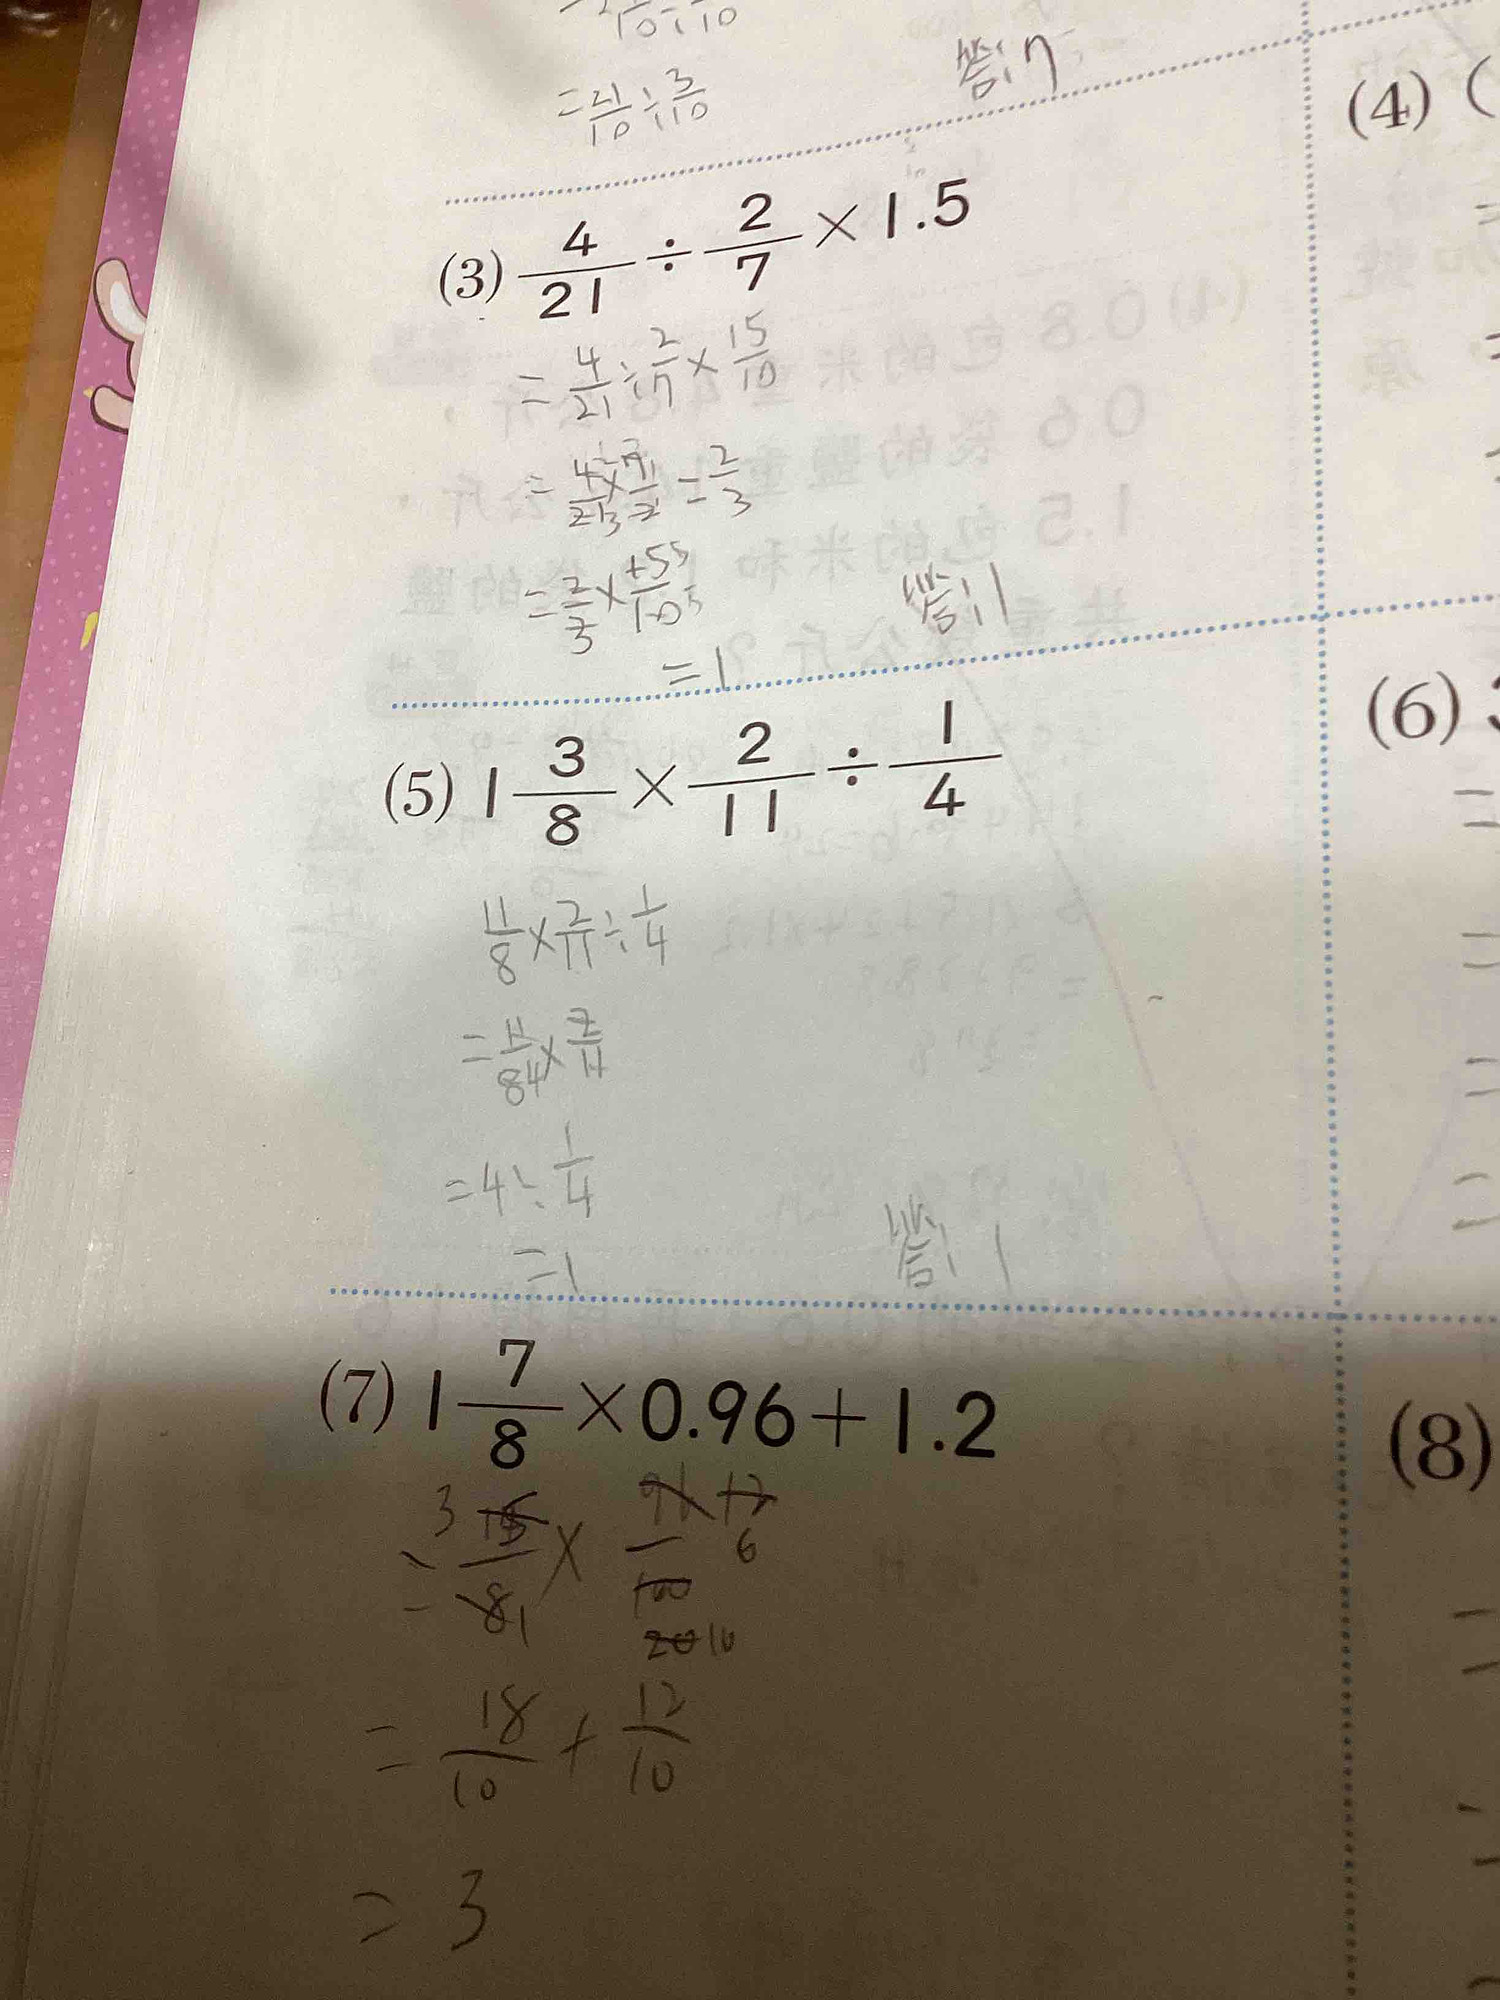 = 21/10 ÷ 3/10
答:7
(4) (
(3) 4/21 ÷ 2/7 × 1.5
= 4/21 ÷ 2/7 × 15/10
= 4/21 × 7/2 = 2/3
= 2/3 × 15/10
答:1
= 1
(5) 1 3/8 × 2/11 ÷ 1/4
(6)
11/8 × 2/11 ÷ 1/4
= 11/8 4 × 2/11
= 4 ÷ 1/4
= 1
答:1
(7) 1 7/8 × 0.96 + 1.2
(8)
= 3 15/8 1 × 96/100 12 6 20 10
= 18/10 + 12/10
= 3